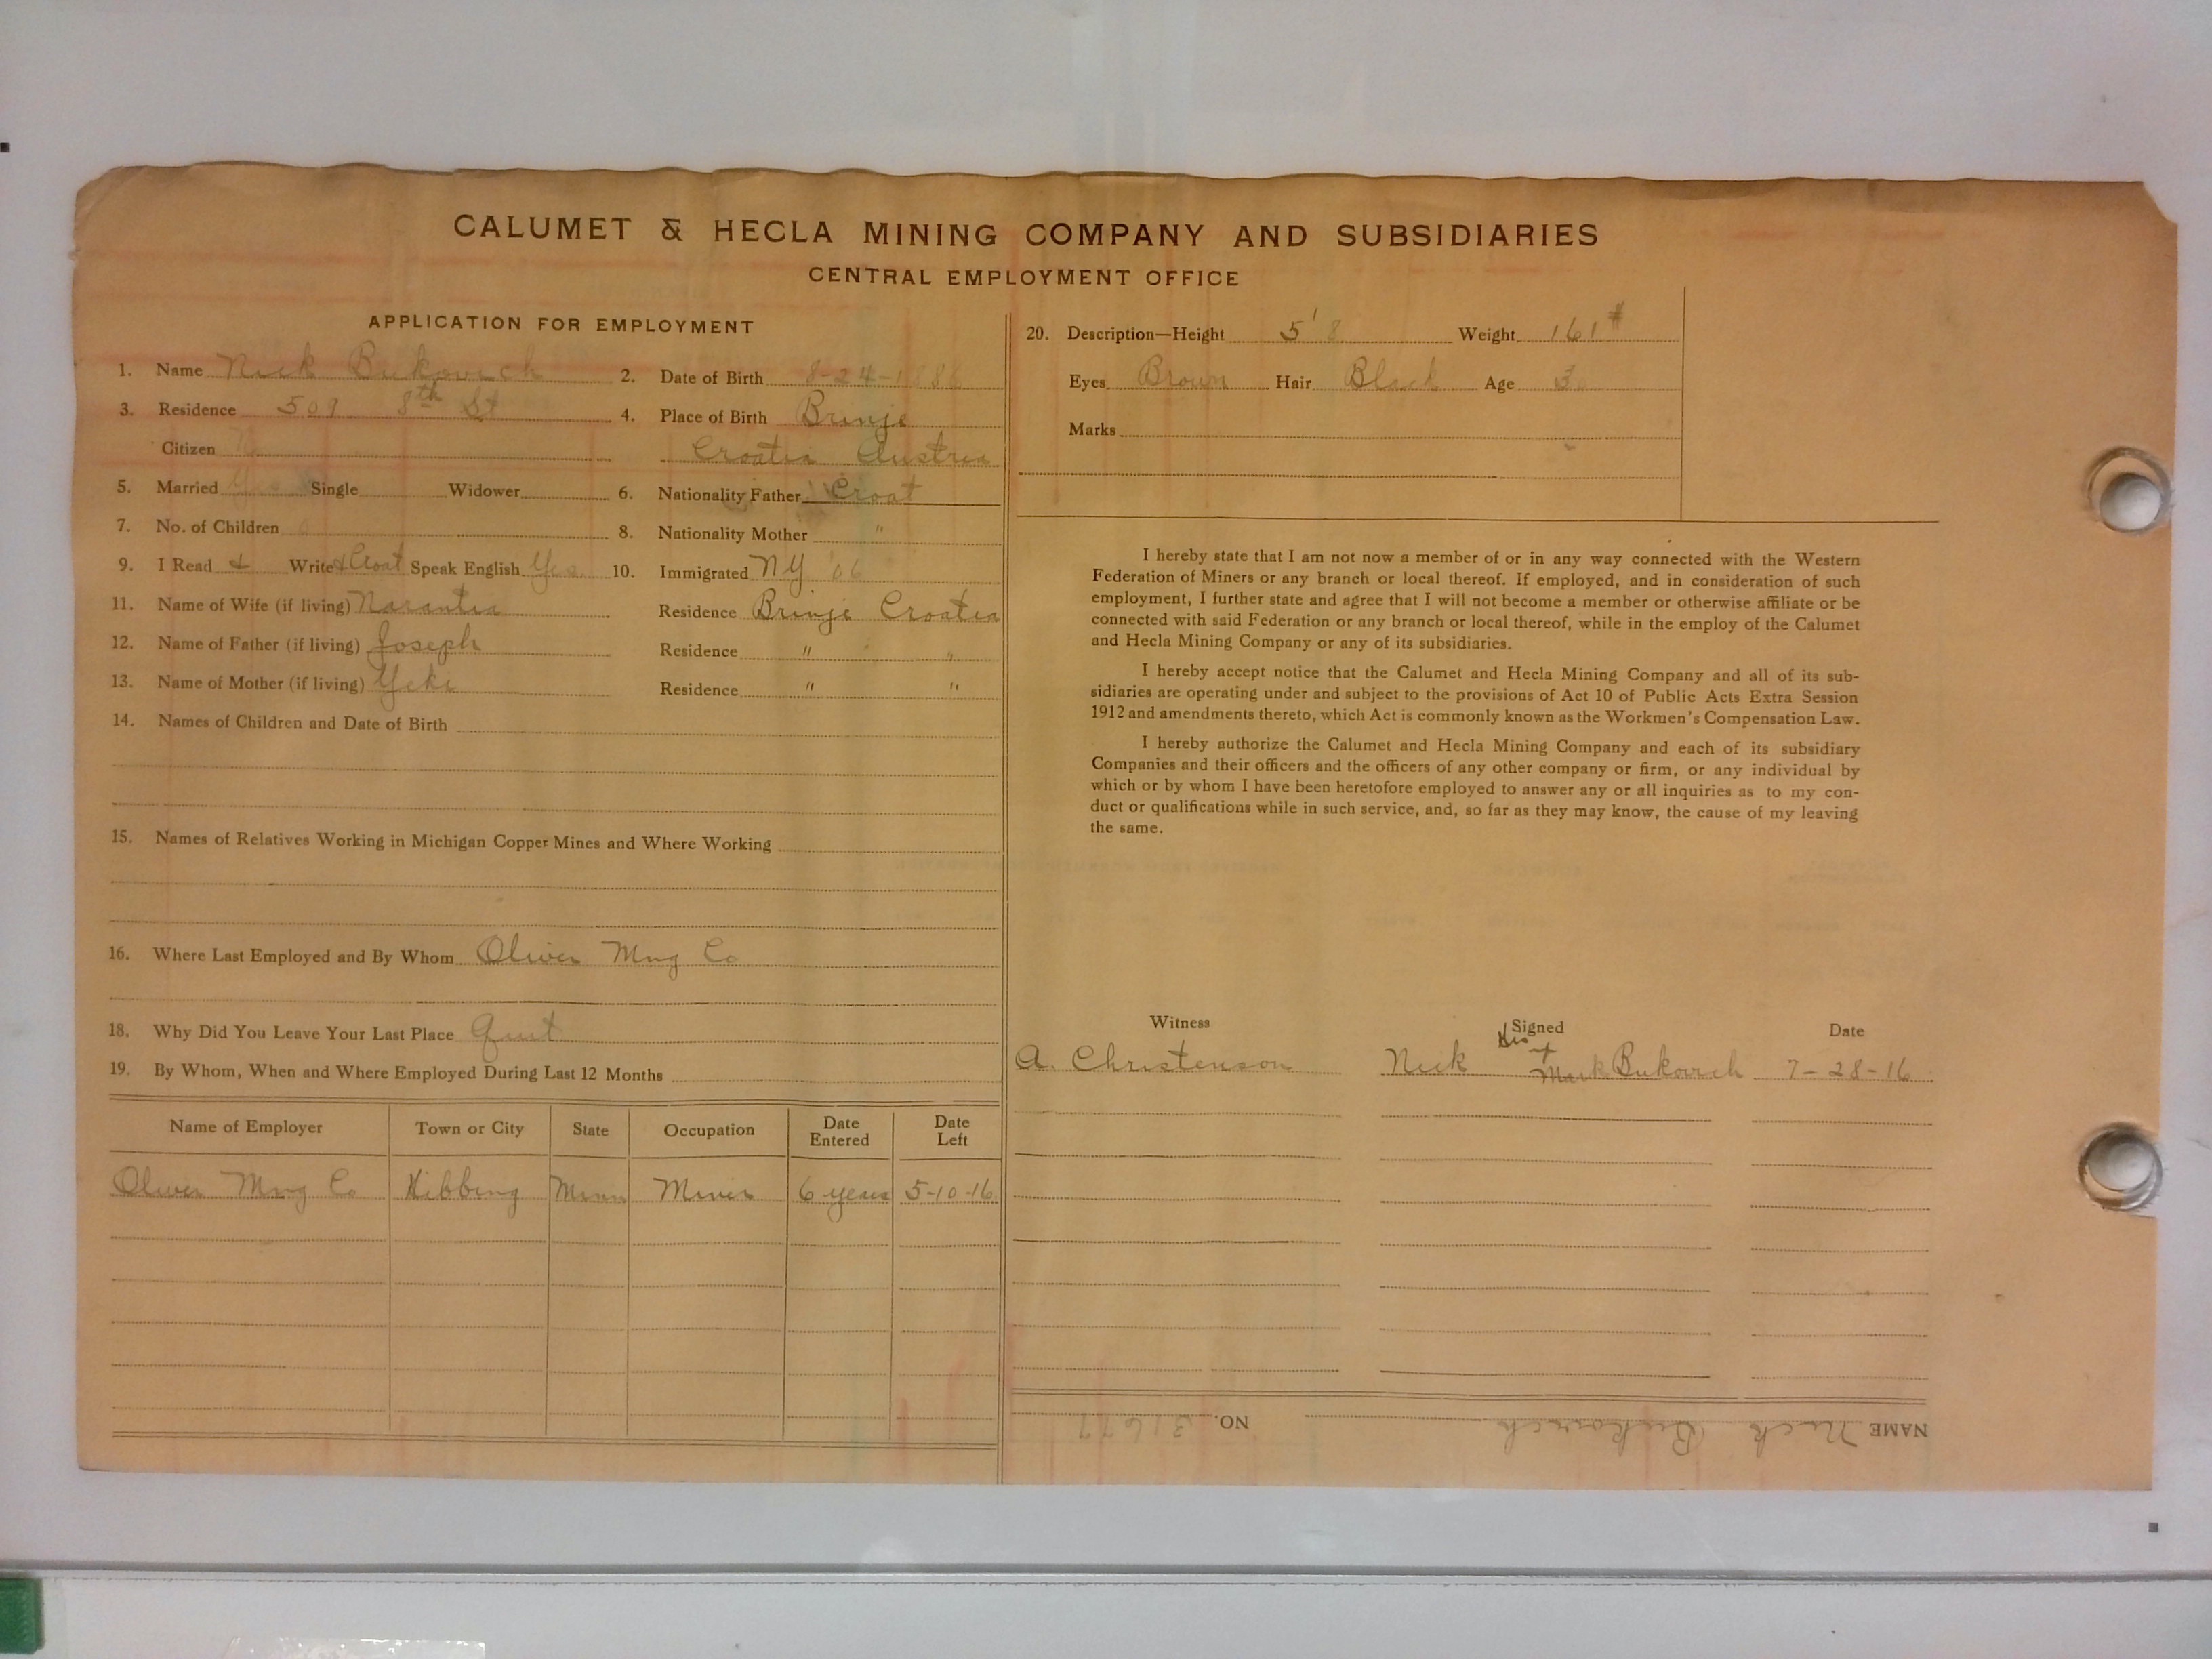 CALUMET & HECLA MINING COMPANY AND SUBSIDIARIES
CENTRAL EMPLOYMENT OFFICE
APPLICATION FOR EMPLOYMENT
1. Name Nick Bukovich 2. Date of Birth 8-24-1886
3. Residence 509 8th St 4. Place of Birth Brinje
Citizen Croatia Austria
5. Married Yes Single Widower 6. Nationality Father Croat
7. No. of Children 0 8. Nationality Mother "
9. I Read & Write & Croat Speak English Yes 10. Immigrated NY '06
11. Name of Wife (if living) Residence Brinje Croatia
12. Name of Father (if living) Joseph Residence " "
13. Name of Mother (if living) Residence " "
14. Names of Children and Date of Birth
15. Names of Relatives Working in Michigan Copper Mines and Where Working
16. Where Last Employed and By Whom Oliver Mng Co
18. Why Did You Leave Your Last Place Quit
19. By Whom, When and Where Employed During Last 12 Months
Name of Employer Town or City State Occupation Date Entered Date Left
Oliver Mng Co Hibbing Minn Miner 6 years 5-10-16
20. Description—Height 5' 8 Weight 161#
Eyes Brown Hair Black Age
Marks
I hereby state that I am not now a member of or in any way connected with the Western
Federation of Miners or any branch or local thereof. If employed, and in consideration of such
employment, I further state and agree that I will not become a member or otherwise affiliate or be
connected with said Federation or any branch or local thereof, while in the employ of the Calumet
and Hecla Mining Company or any of its subsidiaries.
I hereby accept notice that the Calumet and Hecla Mining Company and all of its sub-
sidiaries are operating under and subject to the provisions of Act 10 of Public Acts Extra Session
1912 and amendments thereto, which Act is commonly known as the Workmen's Compensation Law.
I hereby authorize the Calumet and Hecla Mining Company and each of its subsidiary
Companies and their officers and the officers of any other company or firm, or any individual by
which or by whom I have been heretofore employed to answer any or all inquiries as to my con-
duct or qualifications while in such service, and, so far as they may know, the cause of my leaving
the same.
Witness Signed Date
A. Christenson Nick His + Mark Bukovich 7-28-16
NAME Nick Bukovich NO. 31677